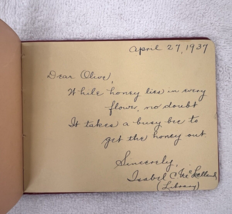 April 27, 1937
Dear Olive,
While honey lies in every
flower, no doubt
It takes a busy bee to
get the honey out
Sincerely,
Isabel C. McClelland
(Library)